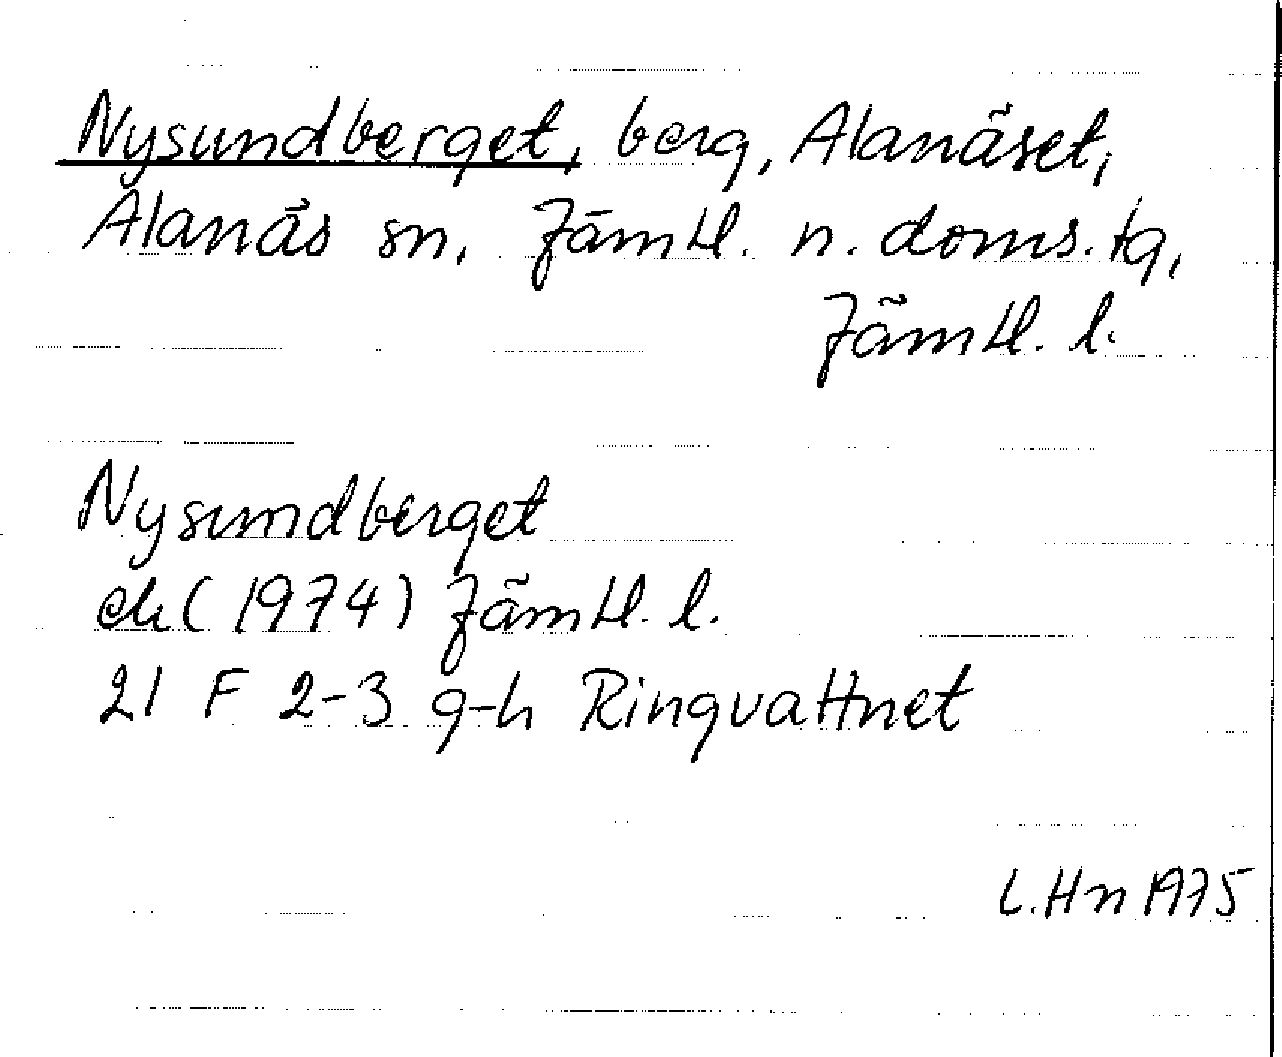 Nysundberget, berg, Alanäset,
Alanäs sn, Jämtl. n. doms.tg,
Jämtl. l.
Nysundberget
ek (1974) Jämtl. l.
21 F 2-3 g-h Ringvattnet
L.Hn 1975